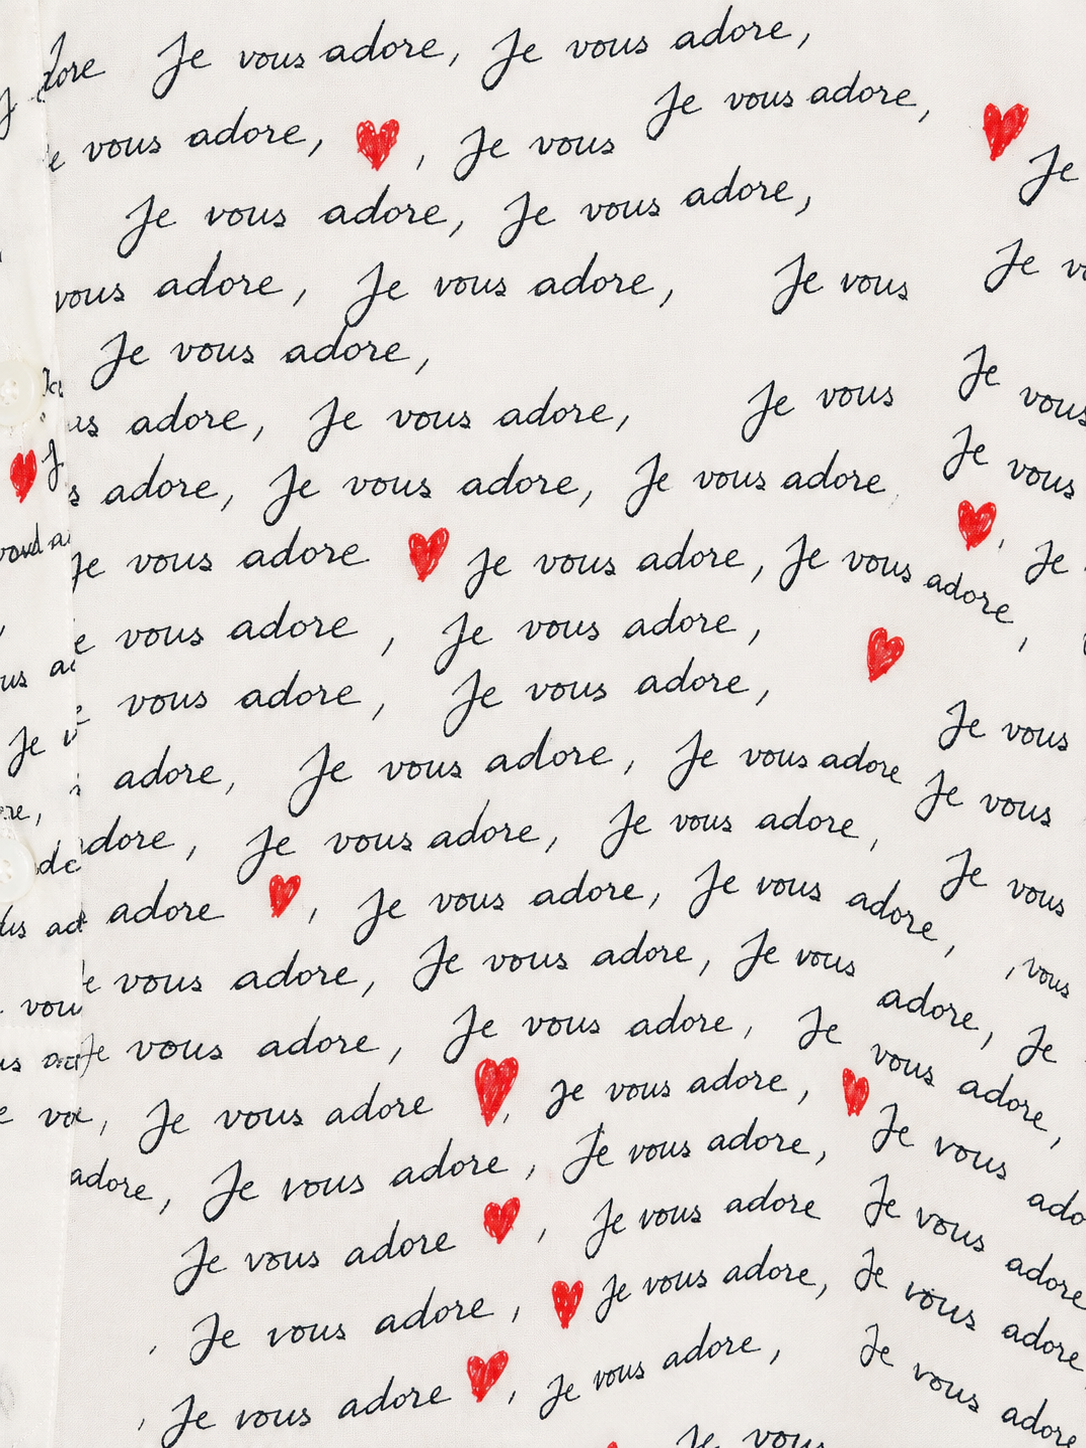 dore Je vous adore, Je vous adore,
Je vous adore,
vous adore, , Je vous
Je
Je vous adore, Je vous adore,
vous adore, Je vous adore, Je vous Je
Je vous adore,
adore, Je vous adore, Je vous Je vous
adore, Je vous adore, Je vous adore Je vous
Je vous adore Je vous adore, Je vous adore, Je
vous adore , Je vous adore,
vous adore, Je vous adore,
Je vous
adore, Je vous adore, Je vous adore Je vous
adore, Je vous adore, Je vous adore,
Je vous
adore , Je vous adore, Je vous adore,
, vous
vous adore, Je vous adore, Je vous adore, Je
Je vous adore, Je vous adore, Je vous adore,
, Je vous adore , Je vous adore, Je vous
adore, Je vous adore, Je vous adore,
Je vous adore , Je vous adore Je vous adore
, Je vous adore, Je vous adore, Je vous adore
, Je vous adore , Je vous adore, Je vous adore
Je vous